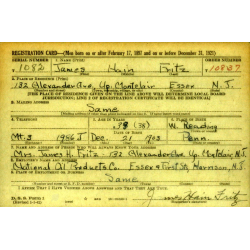 REGISTRATION CARD—(Men born on or after February 17, 1897 and on or before December 31, 1921)
SERIAL NUMBER 1. NAME (Print) ORDER NUMBER
1092 James Hain Fritz 10837
2. PLACE OF RESIDENCE (Print)
132 Alexander Ave. Up. Montclair Essex N.J.
[THE PLACE OF RESIDENCE GIVEN ON THE LINE ABOVE WILL DETERMINE LOCAL BOARD
JURISDICTION; LINE 2 OF REGISTRATION CERTIFICATE WILL BE IDENTICAL]
3. MAILING ADDRESS
Same
4. TELEPHONE 5. AGE IN YEARS 6. PLACE OF BIRTH
38 W. Reading
DATE OF BIRTH
Dec. 21 1903 Penn.
7. NAME AND ADDRESS OF PERSON WHO WILL ALWAYS KNOW YOUR ADDRESS
Mrs. James H. Fritz - 132 Alexander Ave Up. Montclair N.J.
8. EMPLOYER'S NAME AND ADDRESS
National Oil Products Co. Essex & First St. Harrison, N.J.
9. PLACE OF EMPLOYMENT OR BUSINESS
Same
I AFFIRM THAT I HAVE VERIFIED ABOVE ANSWERS AND THAT THEY ARE TRUE.
D. S. S. Form 1
James Hain Fritz